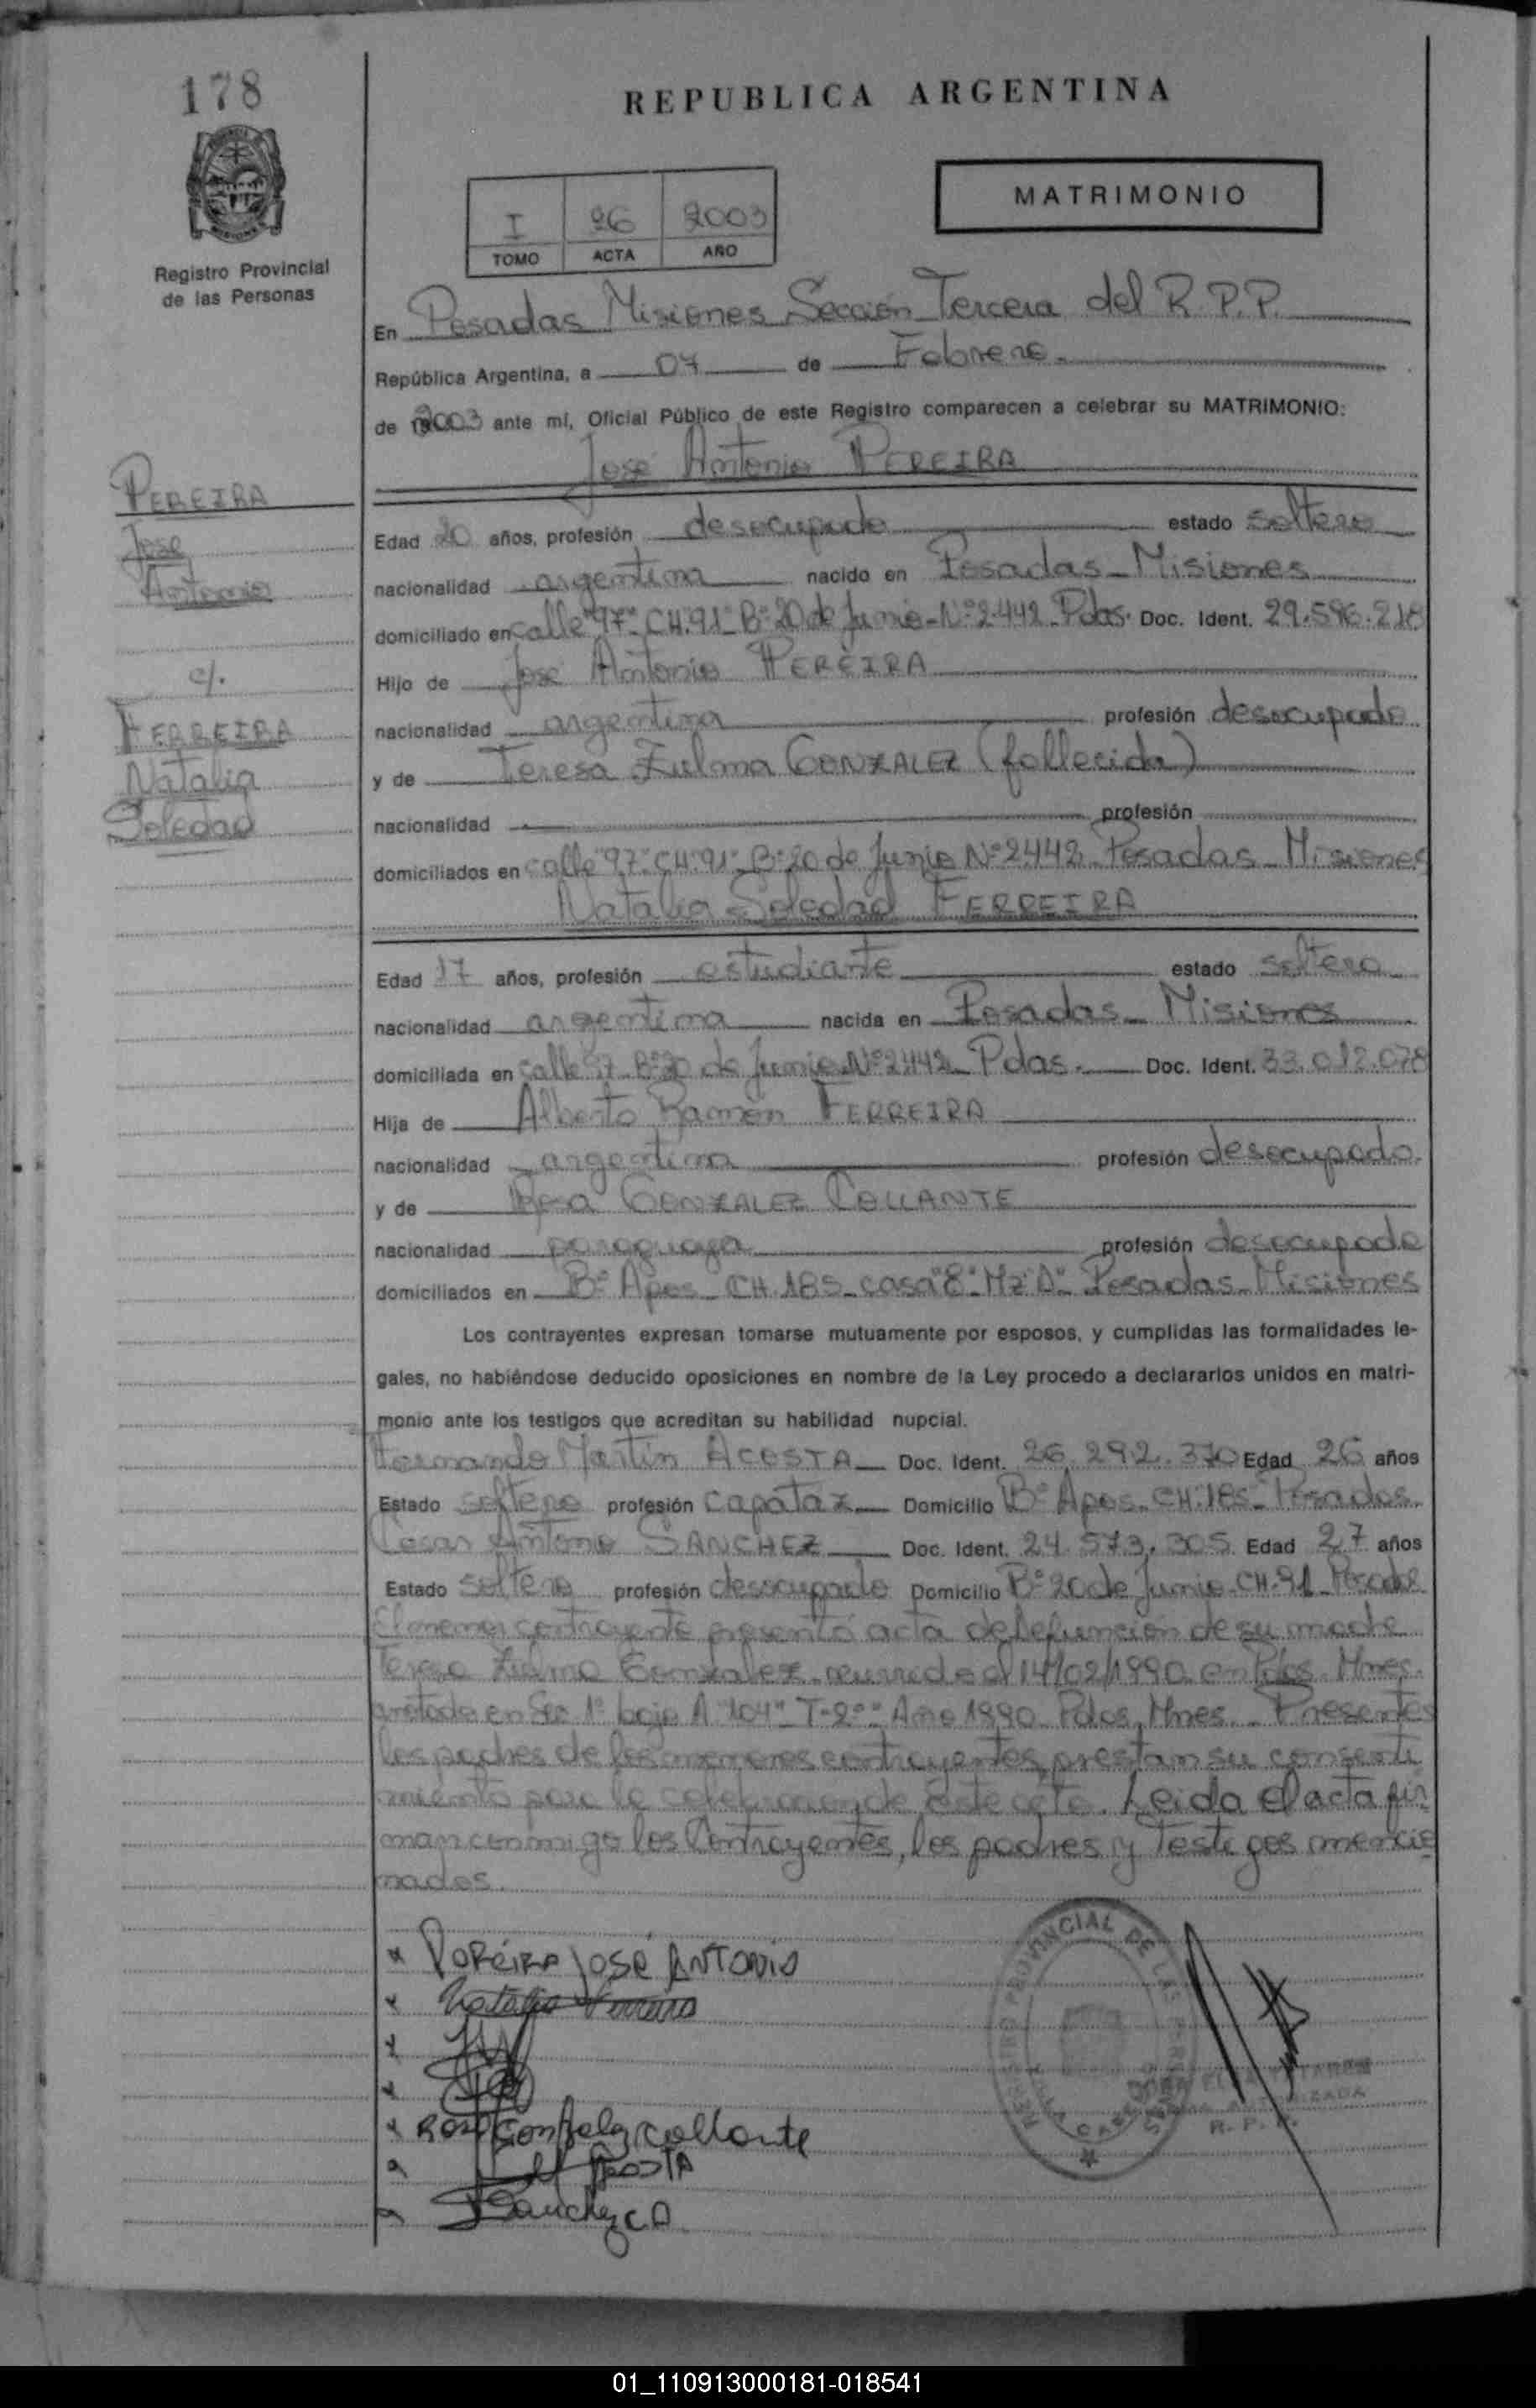 178
REPUBLICA ARGENTINA
MATRIMONIO
I 26 2003
TOMO ACTA AÑO
Registro Provincial
de las Personas
En Posadas Misiones Sección Tercera del R.P.P.
República Argentina, a 07 de Febrero.
de 2003 ante mí, Oficial Público de este Registro comparecen a celebrar su MATRIMONIO:
José Antonio PEREIRA
PEREIRA
José
Antonio
c/.
FERREIRA
Natalia
Soledad
Edad 20 años, profesión desocupado estado soltero
nacionalidad argentina nacido en Posadas - Misiones
domiciliado en calle "97" CH. 91 - B° 20 de Junio - N° 2442 - Pdas. Doc. Ident. 29.596.218
Hijo de José Antonio PEREIRA
nacionalidad argentina profesión desocupado
y de Teresa Zulma GONZALEZ (fallecida)
nacionalidad profesión
domiciliados en calle "97" CH "91" B° 20 de Junio N° 2442 - Posadas - Misiones
Natalia Soledad FERREIRA
Edad 17 años, profesión estudiante estado soltera
nacionalidad argentina nacida en Posadas - Misiones
domiciliada en calle 97 B° 20 de Junio N° 2442 - Pdas. Doc. Ident. 33.012.078
Hija de Alberto Ramón FERREIRA
nacionalidad argentina profesión desocupado.
y de Rosa GONZALEZ COLLANTE
nacionalidad paraguaya profesión desocupada
domiciliados en B° Apos - CH. 185 - casa "8" Mz "D" - Posadas - Misiones
Los contrayentes expresan tomarse mutuamente por esposos, y cumplidas las formalidades le-
gales, no habiéndose deducido oposiciones en nombre de la Ley procedo a declararlos unidos en matri-
monio ante los testigos que acreditan su habilidad nupcial.
Fernando Martín ACOSTA Doc. Ident. 26.292.370 Edad 26 años
Estado soltero profesión capataz Domicilio B° Apos - CH. 185 - Posadas.
Cesar Antonio SANCHEZ Doc. Ident. 24.573.305 Edad 27 años
Estado soltero profesión desocupado Domicilio B° 20 de Junio - CH. 91 - Posadas
El menor contrayente presentó acta de defunción de su madre
Teresa Zulma Gonzalez - ocurrido el 14/02/1990 en Pdas. Mnes.
anotada en Sec 1° bajo A "104" T-2° Año 1990 Pdas, Mnes. - Presentes
los padres de los menores contrayentes, prestan su consenti
miento para la celebracion de este acto. Leida el acta fir
man conmigo los Contrayentes, los padres y Testigos mencio
nados.
PEREIRA JOSÉ ANTONIO
Natalia Ferreira
Rosa Gonzalez Collante
ACOSTA
Sanchez C A
PROVINCIAL DE LAS
R. P. P.
01_110913000181-018541